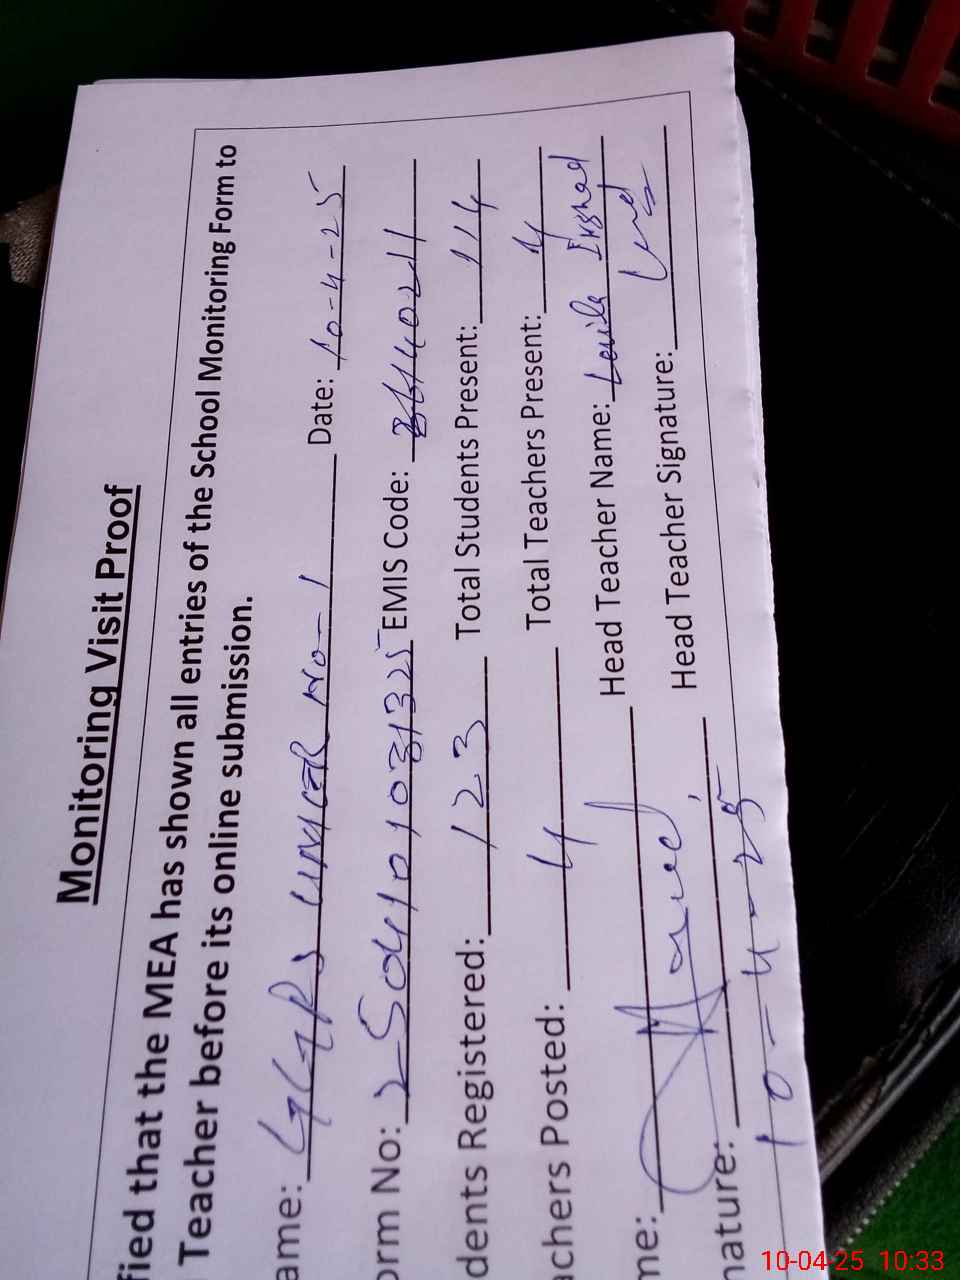 Monitoring Visit Proof
fied that the MEA has shown all entries of the School Monitoring Form to
Teacher before its online submission.
ame: GGPS UMCER No-1 Date: 10-4-25
orm No: 2504101031325 EMIS Code:
dents Registered: 123 Total Students Present: 114
achers Posted: 4 Total Teachers Present: 4
me: Head Teacher Name: Irshad
nature: Head Teacher Signature:
10-4-25
10-04-25 10:33